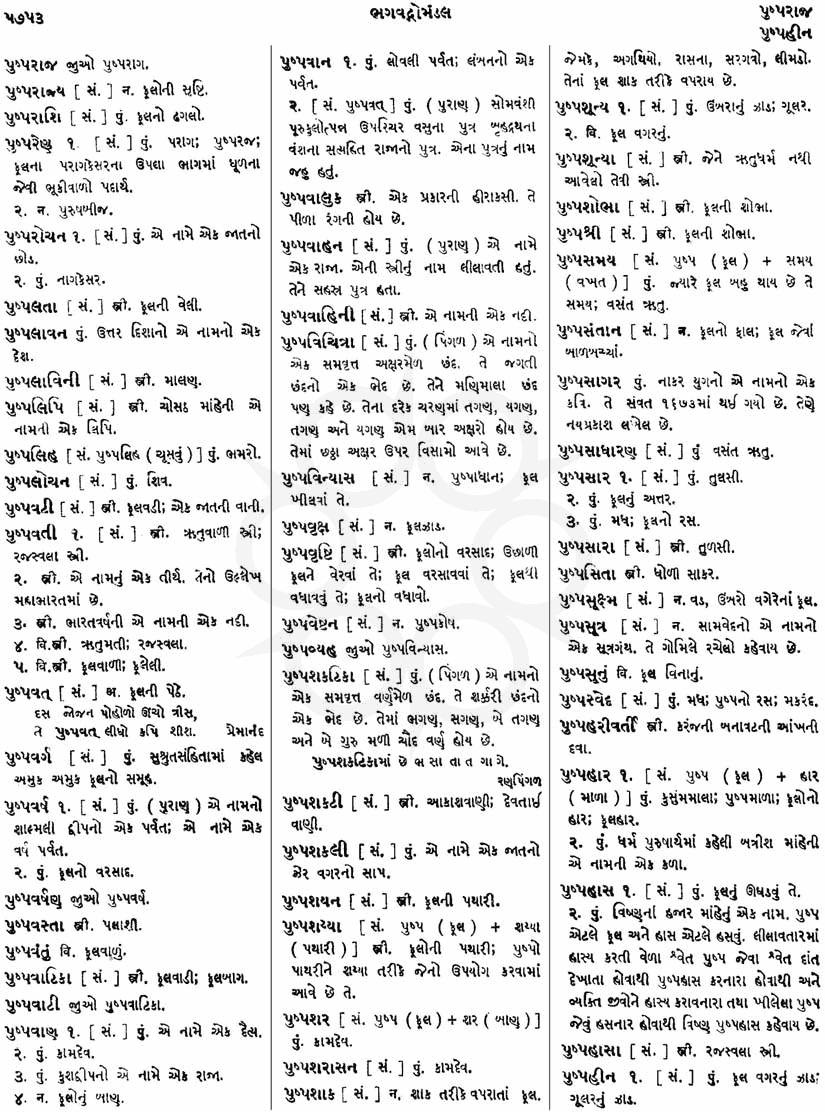 ૫૭૫૩
ભગવદ્ગોમંડલ
પુષ્પરાજ
પુષ્પહીન
પુષ્પરાજ જુઓ પુષ્પરાગ.
પુષ્પરાજ્ય [ સં. ] ન. ફૂલોની સૃષ્ટિ.
પુષ્પરાશિ [ સં. ] પું. ફૂલનો ઢગલો.
પુષ્પરેણુ ૧. [ સં. ] પું. પરાગ; પુષ્પરજ;
ફૂલના પરાગકેસરના ઉપલા ભાગમાં ધૂળના
જેવી ભૂકીવાળો પદાર્થ.
૨. ન. પુરુષબીજ.
પુષ્પરોચન ૧. [ સં. ] પું. એ નામે એક જાતનો
છોડ.
૨. પું. નાગકેસર.
પુષ્પલતા [ સં. ] સ્ત્રી. ફૂલની વેલી.
પુષ્પલાવન પું. ઉત્તર દિશાનો એ નામનો એક
દેશ.
પુષ્પલાવિની [ સં. ] સ્ત્રી. માલણ.
પુષ્પલિપિ [ સં. ] સ્ત્રી. ચોસઠ માંહેની એ
નામની એક લિપિ.
પુષ્પલિહ [ સં. પુષ્પલિહ (ચૂસવું) ] પું. ભમરો.
પુષ્પલોચન [ સં. ] પું. શિવ.
પુષ્પવટી [ સં. ] સ્ત્રી. ફૂલવડી; એક જાતની વાની.
પુષ્પવતી ૧. [ સં. ] સ્ત્રી. ઋતુવાળી સ્ત્રી;
રજસ્વલા સ્ત્રી.
૨. સ્ત્રી. એ નામનું એક તીર્થ. તેનો ઉલ્લેખ
મહાભારતમાં છે.
૩. સ્ત્રી. ભારતવર્ષની એ નામની એક નદી.
૪. વિ.સ્ત્રી. ઋતુમતી; રજસ્વલા.
૫. વિ.સ્ત્રી. ફૂલવાળી; ફૂલેલી.
પુષ્પવત્ [ સં. ] અ. ફૂલની પેઠે.
દસ જોજન પોહોળો ઊંચો ત્રીસ,
તે પુષ્પવત્ લીધો કપિ શીશ. પ્રેમાનંદ
પુષ્પવર્ગ [ સં. ] પું. સુશ્રુતસંહિતામાં કહેલ
અમુક અમુક ફૂલનો સમૂહ.
પુષ્પવર્ષ ૧. [ સં. ] પું. (પુરાણ) એ નામનો
શાલ્મલી દ્વીપનો એક પર્વત; એ નામે એક
વર્ષ પર્વત.
૨. પું. ફૂલનો વરસાદ.
પુષ્પવર્ષણ જુઓ પુષ્પવર્ષ.
પુષ્પવસ્તા સ્ત્રી. પલાશી.
પુષ્પવંતું વિ. ફૂલવાળું.
પુષ્પવાટિકા [ સં. ] સ્ત્રી. ફૂલવાડી; ફૂલબાગ.
પુષ્પવાટી જુઓ પુષ્પવાટિકા.
પુષ્પવાણ ૧. [ સં. ] પું. એ નામે એક દૈત્ય.
૨. પું. કામદેવ.
૩. પું. કુશદ્વીપનો એ નામે એક રાજા.
૪. ન. ફૂલોનું બાણ.
પુષ્પવાન ૧. પું. લોવલી પર્વત; લંબનનો એક
પર્વત.
૨. [ સં. પુષ્પવત્ ] પું. ( પુરાણ ) સોમવંશી
પુરુકુલોત્પન્ન ઉપરિચર વસુના પુત્ર બૃહદ્રથના
વંશના સત્યહિત રાજાનો પુત્ર. એના પુત્રનું નામ
જહુ હતું.
પુષ્પવાલુક સ્ત્રી. એક પ્રકારની હીરાકસી. તે
પીળા રંગની હોય છે.
પુષ્પવાહન [ સં. ] પું. (પુરાણ) એ નામે
એક રાજા. એની સ્ત્રીનું નામ લીલાવતી હતું.
તેને સહસ્ર પુત્ર હતા.
પુષ્પવાહિની [ સં. ] સ્ત્રી. એ નામની એક નદી.
પુષ્પવિચિત્રા [ સં. ] પું. ( પિંગળ ) એ નામનો
એક સમવૃત્ત અક્ષરમેળ છંદ. તે જગતી
છંદનો એક ભેદ છે. તેને મણિમાલા છંદ
પણ કહે છે. તેના દરેક ચરણમાં તગણ, યગણ,
તગણ અને યગણ એમ બાર અક્ષરો હોય છે.
તેમાં છઠ્ઠા અક્ષર ઉપર વિસામો આવે છે.
પુષ્પવિન્યાસ [ સં. ] ન. પુષ્પાધાન; ફૂલ
ખીલવાં તે.
પુષ્પવૃક્ષ [ સં. ] ન. ફૂલઝાડ.
પુષ્પવૃષ્ટિ [ સં. ] સ્ત્રી. ફૂલોનો વરસાદ; ઉછાળી
ફૂલને વેરવાં તે; ફૂલ વરસાવવાં તે; ફૂલથી
વધાવવું તે; ફૂલનો વધાવો.
પુષ્પવેષ્ટન [ સં. ] ન. પુષ્પકોષ.
પુષ્પવ્યહ જુઓ પુષ્પવિન્યાસ.
પુષ્પશકટિકા [ સં. ] પું. (પિંગળ) એ નામનો
એક સમવૃત્ત વર્ણમેળ છંદ. તે શર્કરી છંદનો
એક ભેદ છે. તેમાં ભગણ, સગણ, બે તગણ
અને બે ગુરુ મળી ચૌદ વર્ણ હોય છે.
પુષ્પશકટિકામાં છે ભ સા તા ત ગા ગે.
રણપિંગળ
પુષ્પશકટી [ સં. ] સ્ત્રી. આકાશવાણી; દેવતાઈ
વાણી.
પુષ્પશકલી [ સં. ] પું. એ નામે એક જાતનો
ઝેર વગરનો સાપ.
પુષ્પશયન [ સં. ] સ્ત્રી. ફૂલની પથારી.
પુષ્પશય્યા [ સં. પુષ્પ ( ફૂલ ) + શય્યા
(પથારી) ] સ્ત્રી. ફૂલોની પથારી; પુષ્પો
પાથરીને શય્યા તરીકે જેનો ઉપયોગ કરવામાં
આવે છે તે.
પુષ્પશર [ સં. પુષ્પ (ફૂલ) + શર ( બાણ ) ]
પું. કામદેવ.
પુષ્પશરાસન [ સં. ] પું. કામદેવ.
પુષ્પશાક [ સં. ] ન. શાક તરીકે વપરાતાં ફૂલ.
જેમકે, અગથિયો, રાસના, સરગવો, લીમડો.
તેનાં ફૂલ શાક તરીકે વપરાય છે.
પુષ્પશૂન્ય ૧. [ સં. ] પું. ઉંબરાનું ઝાડ; ગૂલર.
૨. વિ. ફૂલ વગરનું.
પુષ્પશૂન્યા [ સં. ] સ્ત્રી. જેને ઋતુધર્મ નથી
આવેલો તેવી સ્ત્રી.
પુષ્પશોભા [ સં. ] સ્ત્રી. ફૂલની શોભા.
પુષ્પશ્રી [ સં. ] સ્ત્રી. ફૂલની શોભા.
પુષ્પસમય [ સં. પુષ્પ ( ફૂલ ) + સમય
( વખત ) ] પું. જ્યારે ફૂલ બહુ થાય છે તે
સમય; વસંત ઋતુ.
પુષ્પસંતાન [ સં. ] ન. ફૂલનો ફાલ; ફૂલ જેવાં
બાળબચ્ચાં.
પુષ્પસાગર પું. નાકર યુગનો એ નામનો એક
કવિ. તે સંવત ૧૬૭૩માં થઈ ગયો છે. તેણે
નયપ્રકાશ લખેલ છે.
પુષ્પસાધારણ [ સં. ] પું વસંત ઋતુ.
પુષ્પસાર ૧. [ સં. ] પું. તુલસી.
૨. પું. ફૂલનું અત્તર.
૩. પું. મધ; ફૂલનો રસ.
પુષ્પસારા [ સં. ] સ્ત્રી. તુળસી.
પુષ્પસિતા સ્ત્રી. ધોળી સાકર.
પુષ્પસૂક્ષ્મ [ સં. ] ન. વડ, ઉંબરો વગેરેનાં ફૂલ.
પુષ્પસૂત્ર [ સં. ] ન. સામવેદનો એ નામનો
એક સૂત્રગ્રંથ. તે ગોભિલે રચેલો કહેવાય છે.
પુષ્પસૂનું વિ. ફૂલ વિનાનું.
પુષ્પસ્વેદ [ સં. ] પું. મધ; પુષ્પનો રસ; મકરંદ.
પુષ્પહરીવર્તી સ્ત્રી. કરંજની બનાવટની આંખની
દવા.
પુષ્પહાર ૧. [ સં. પુષ્પ ( ફૂલ ) + હાર
( માળા ) ] પું. કુસુંમમાલા; પુષ્પમાળા; ફૂલોનો
હાર; ફૂલહાર.
૨. પું. ધર્મ પુરુષાર્થમાં કહેલી બત્રીશ માંહેની
એ નામની એક કળા.
પુષ્પહાસ ૧. [ સં. ] ફૂલનું ઊઘડવું તે.
૨. પું. વિષ્ણુનાં હજાર માંહેનું એક નામ. પુષ્પ
એટલે ફૂલ અને હાસ એટલે હસવું. લીલાવતારમાં
હાસ્ય કરતી વેળા શ્વેત પુષ્પ જેવા શ્વેત દાંત
દેખાતા હોવાથી પુષ્પહાસ કરનારા હોવાથી અને
વ્યક્તિ જીવોને હાસ્ય કરાવનારા તથા ખીલેલા પુષ્પ
જેવું હસનાર હોવાથી વિષ્ણુ પુષ્પહાસ કહેવાય છે.
પુષ્પહાસા [ સં. ] સ્ત્રી. રજસ્વલા સ્ત્રી.
પુષ્પહીન ૧. [ સં. ] પું. ફૂલ વગરનું ઝાડ;
ગૂલરનું ઝાડ.